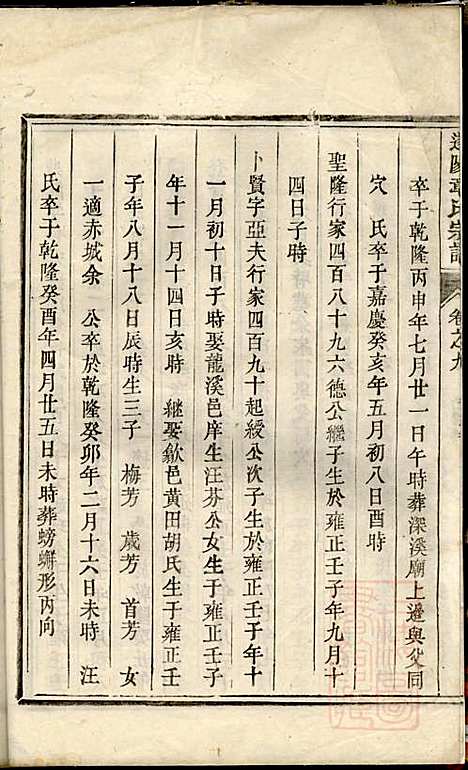 章氏宗譜
卷之九
卒于乾隆丙申年七月廿一日午時葬深溪廟上邊與父同
穴　氏卒于嘉慶癸亥年五月初八日酉時
聖隆行家四百八十九六德公繼子生於雍正壬子年九月十
四日子時
卜賢字亞夫行家四百九十起綬公次子生於雍正壬子年十
一月初十日子時娶龍溪邑庠生汪芬公女生于雍正壬子
年十一月十四日亥時　繼娶歙邑黃田胡氏生于雍正壬
子年八月十八日辰時生三子　梅芳　歲芳　首芳　女
一適赤城余　公卒於乾隆癸卯年二月十六日未時　汪
氏卒于乾隆癸酉年四月廿五日未時葬螃蠏形丙向